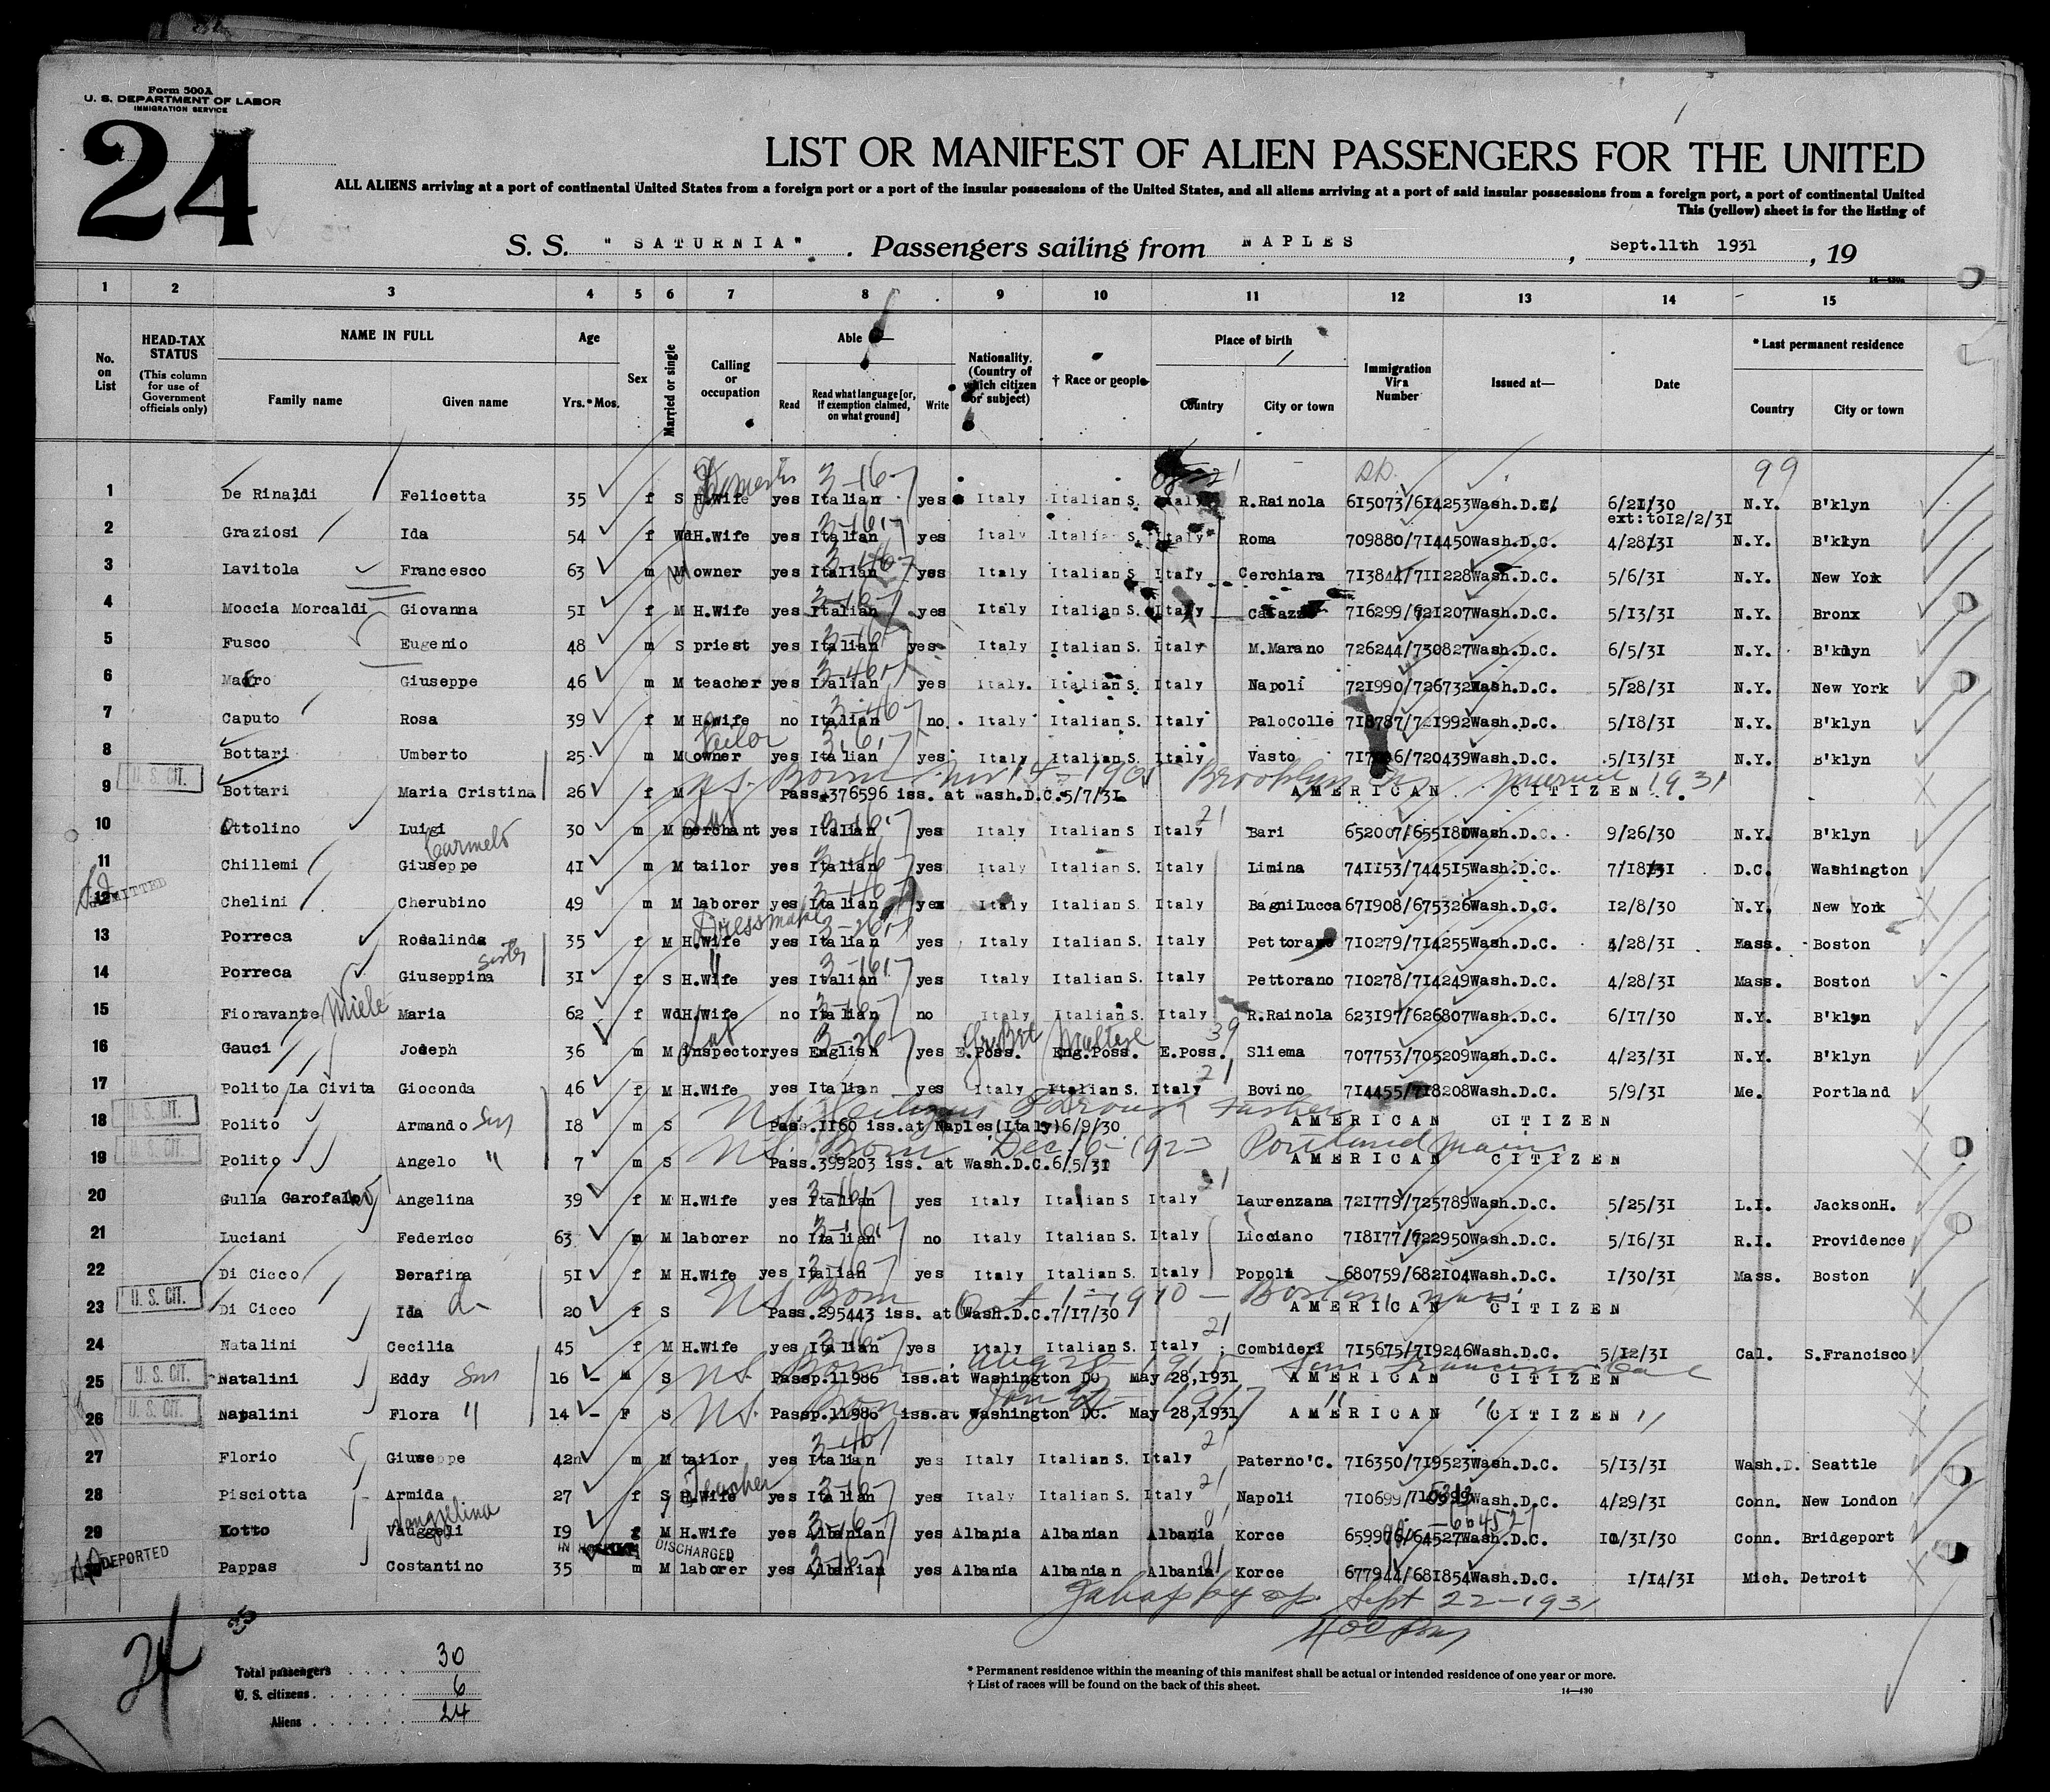 Form 500A
U. S. DEPARTMENT OF LABOR
IMMIGRATION SERVICE
24
LIST OR MANIFEST OF ALIEN PASSENGERS FOR THE UNITED
ALL ALIENS arriving at a port of continental United States from a foreign port or a port of the insular possessions of the United States, and all aliens arriving at a port of said insular possessions from a foreign port, a port of continental United
This (yellow) sheet is for the listing of
S. S. "SATURNIA". Passengers sailing from NAPLES, Sept.11th 1931, 19
1 2 3 4 5 6 7 8 9 10 11 12 13 14 15
No. on List
HEAD-TAX STATUS (This column for use of Government officials only)
NAME IN FULL Family name Given name
Age Yrs. Mos.
Sex
Married or single
Calling or occupation
Able Read Read what language [or, if exemption claimed, on what ground] Write
Nationality. (Country of which citizen or subject)
† Race or people
Place of birth Country City or town
Immigration Visa Number
Issued at—
Date
* Last permanent residence Country City or town
99
1 De Rinaldi Felicetta 35 f S H.Wife yes Italian 3-16- yes Italy Italian S. Italy R.Rainola 615073/614253 Wash.D.C. 6/21/30 N.Y. B'klyn
ext:to12/2/31
2 Graziosi Ida 54 f Wd H.Wife yes Italian yes Italy Italian S. Italy Roma 709880/714450 Wash.D.C. 4/28/31 N.Y. B'klyn
3 Lavitola Francesco 63 m M owner yes Italian yes Italy Italian S Italy Cerchiara 713844/711228 Wash.D.C. 5/6/31 N.Y. New Yok
4 Moccia Morcaldi Giovanna 51 f M H.Wife yes Italian yes Italy Italian S. Italy 716299/721207 Wash.D.C. 5/13/31 N.Y. Bronx
5 Fusco Eugenio 48 m S priest yes Italian yes Italy Italian S. Italy M.Marano 726244/730827 Wash.D.C. 6/5/31 N.Y. B'klyn
6 Giuseppe 46 m M teacher yes Italian yes Italy. Italian S. Italy Napoli 721990/726732 Wash.D.C. 5/28/31 N.Y. New York
7 Caputo Rosa 39 f M H.wife no Italian no. Italy Italian S. Italy PaloColle 718787/721992 Wash.D.C. 5/18/31 N.Y. B'klyn
Tailor
8 Bottari Umberto 25 m M owner yes Italian yes Italy Italian S. Italy Vasto /720439 Wash.D.C. 5/13/31 N.Y. B'klyn
U. S. CIT. Born Brooklyn 1931
9 Bottari Maria Cristina 26 f M Pass.376596 iss. at Wash.D.C.5/7/31 AMERICAN CITIZEN
10 Attolino Luigi 30 m M merchant yes Italian yes Italy Italian S Italy 21 Bari 652007/655180 Wash.D.C. 9/26/30 N.Y. B'klyn
Carmelo
11 Chillemi Giuseppe 41 m M tailor yes Italian yes Italy Italian S. Italy Limina 741153/744515 Wash.D.C. 7/18/31 D.C. Washington
ADMITTED
12 Chelini Cherubino 49 m M laborer yes Italian yes Italy Italian S. Italy BagniLucca 671908/675326 Wash.D.C. 12/8/30 N.Y. New York
Dressmaker
13 Porreca Rosalinda 35 f M H.Wife yes Italian yes Italy Italian S. Italy Pettorano 710279/714255 Wash.D.C. 4/28/31 Mass. Boston
14 Porreca Giuseppina sister 31 f S H.Wife yes Italian yes Italy Italian S. Italy Pettorano 710278/714249 Wash.D.C. 4/28/31 Mass. Boston
15 Fioravante Miele Maria 62 f Wd H.Wife no Italian no Italy Italian S. Italy R.Rainola 623197/626807 Wash.D.C. 6/17/30 N.Y. B'klyn
Gr.Brt Maltese 39
16 Gauci Joseph 36 m M Inspector yes English yes E.Poss. Eng.Poss. E.Poss. Sliema 707753/705209 Wash.D.C. 4/23/31 N.Y. B'klyn
17 Polito La Civita Gioconda 46 f M H.Wife yes Italian yes Italy Italian S. Italy 21 Bovino 714455/718208 Wash.D.C. 5/9/31 Me. Portland
U. S. CIT. U.S. Citizens through father
18 Polito Armando Son 18 m S Pass.1160 iss.at Naples(Italy)6/9/30 AMERICAN CITIZEN
U. S. CIT. U.S. Born Dec. 6-1923 Portland Maine
19 Polito Angelo " 7 m S Pass.399203 iss. at Wash.D.C.6/5/31 AMERICAN CITIZEN
20 Gulla Garofalo Angelina 39 f M H.Wife yes Italian yes Italy Italian S Italy 21 Laurenzana 721779/725789 Wash.D.C. 5/25/31 L.I. JacksonH.
21 Luciani Federico 63 m M laborer no Italian no Italy Italian S. Italy Licciano 718177/722950 Wash.D.C. 5/16/31 R.I. Providence
22 Di Cicco Serafina 51 f M H.Wife yes Italian yes Italy Italian S. Italy Popoli 680759/682104 Wash.D.C. 1/30/31 Mass. Boston
U. S. CIT. U.S. Born Oct 1-1910 - Boston, Mass.
23 Di Cicco Ida 20 f S Pass.295443 iss. at Wash.D.C.7/17/30 AMERICAN CITIZEN
24 Natalini Cecilia 45 f M H.Wife yes Italian yes Italy Italian S. Italy 21 Combideri 715675/719246 Wash.D.C. 5/12/31 Cal. S.Francisco
U. S. CIT. U.S. Born Aug 28-1915 San Francisco Cal
25 Natalini Eddy Son 16 M S Passp.11986 iss.at Washington DC May 28,1931 AMERICAN CITIZEN
U. S. CIT. U.S. Born Jan 1917 " "
26 Natalini Flora " 14 F S Passp.11986 iss.at Washington DC. May 28,1931 AMERICAN CITIZEN
27 Florio Giuseppe 42 m M tailor yes Italian yes Italy Italian S. Italy 21 Paterno'C. 716350/719523 Wash.D.C. 5/13/31 Wash.D. Seattle
Teacher
28 Pisciotta Armida 27 f S H.Wife yes Italian yes Italy Italian S. Italy 21 Napoli 710699/ Wash.D.C. 4/29/31 Conn. New London
Vangjelina -664527
29 Kotto Vauggeli 19 f M H.Wife yes Albanian yes Albania Albanian Albania Korce Wash.D.C. 10/31/30 Conn. Bridgeport
IN HOSPITAL DISCHARGED
DEPORTED
30 Pappas Costantino 35 m M laborer yes Albanian yes Albania Albanian Albania Korce 677944/681854 Wash.D.C. 1/14/31 Mich. Detroit
Sept 22-1931
24
Total passengers 30
U. S. citizens 6
Aliens 24
* Permanent residence within the meaning of this manifest shall be actual or intended residence of one year or more.
† List of races will be found on the back of this sheet.
14—430